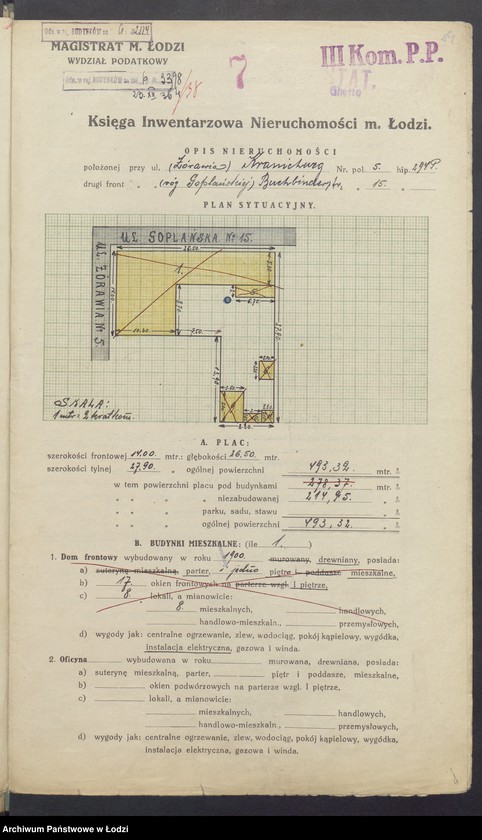 Odn. w rej. BUDYNKÓW za №
MAGISTRAT M. ŁODZI
WYDZIAŁ PODATKOWY
III Kom. P.P.
STAT.
Ghetto
7
Księga Inwentarzowa Nieruchomości m. Łodzi.
OPIS NIERUCHOMOŚCI
położonej przy ul. (Żórawia) Nr. pol. 5. hip. 294P.
drugi front „ „ (róg Goplańskiej) „ 15. „
PLAN SYTUACYJNY.
UL. GOPLAŃSKA № 15.
UL. ŻORAWIA № 5
1.
SKALA:
1 mtr: 2 kratkom.
A. PLAC:
szerokości frontowej 14.00 mtr.: głębokości 26.50 mtr.
szerokości tylnej 27.90 „ ogólnej powierzchni 493,32. mtr. ²
w tem powierzchni placu pod budynkami 278,37. mtr. ²
„ „ „ „ niezabudowanej 214,95. „ ²
„ „ „ parku, sadu, stawu „ ²
„ „ „ ogólnej powierzchni 493,32. „ ²
B. BUDYNKI MIESZKALNE: (ile 1. )
1. Dom frontowy wybudowany w roku 1900. murowany, drewniany, posiada:
a) suterynę mieszkalną, parter, i jedno piętro i poddasze mieszkalne,
b) 17 okien frontowych na parterze wzgl. I piętrze,
c) 8. lokali, a mianowicie:
8. mieszkalnych, handlowych,
handlowo-mieszkaln., przemysłowych,
d) wygody jak: centralne ogrzewanie, zlew, wodociąg, pokój kąpielowy, wygódka,
instalacja elektryczna, gazowa i winda.
2. Oficyna wybudowana w roku murowana, drewniana, posiada:
a) suterynę mieszkalną, parter, piętr i poddasze, mieszkalne,
b) okien podwórzowych na parterze wzgl. I piętrze,
c) lokali, a mianowicie:
mieszkalnych, handlowych,
handlowo-mieszkaln., przemysłowych,
d) wygody jak: centralne ogrzewanie, zlew, wodociąg, pokój kąpielowy, wygódka,
instalacja elektryczna, gazowa i winda.
Archiwum Państwowe w Łodzi